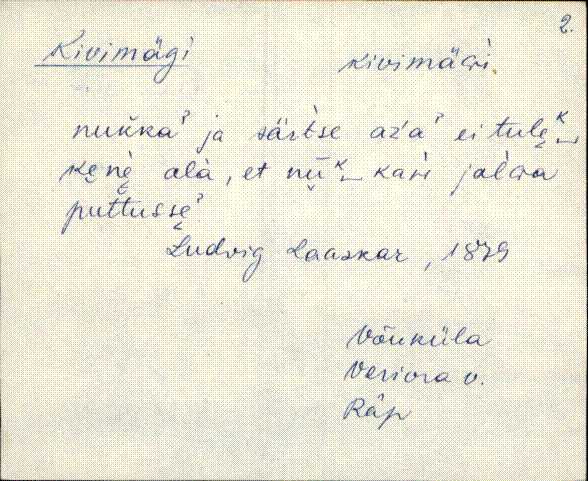 2.
Kivimägi kivimäɢi.
nukka' ja särtse až'a' ei tulę̮ᴷ‿
kęnę̀ alà, et nū̮ᴷ‿ kaɢi jalɢa
puttussę'
Ludvig Laaskar, 1879
Võuküla
Veriora v.
Räp